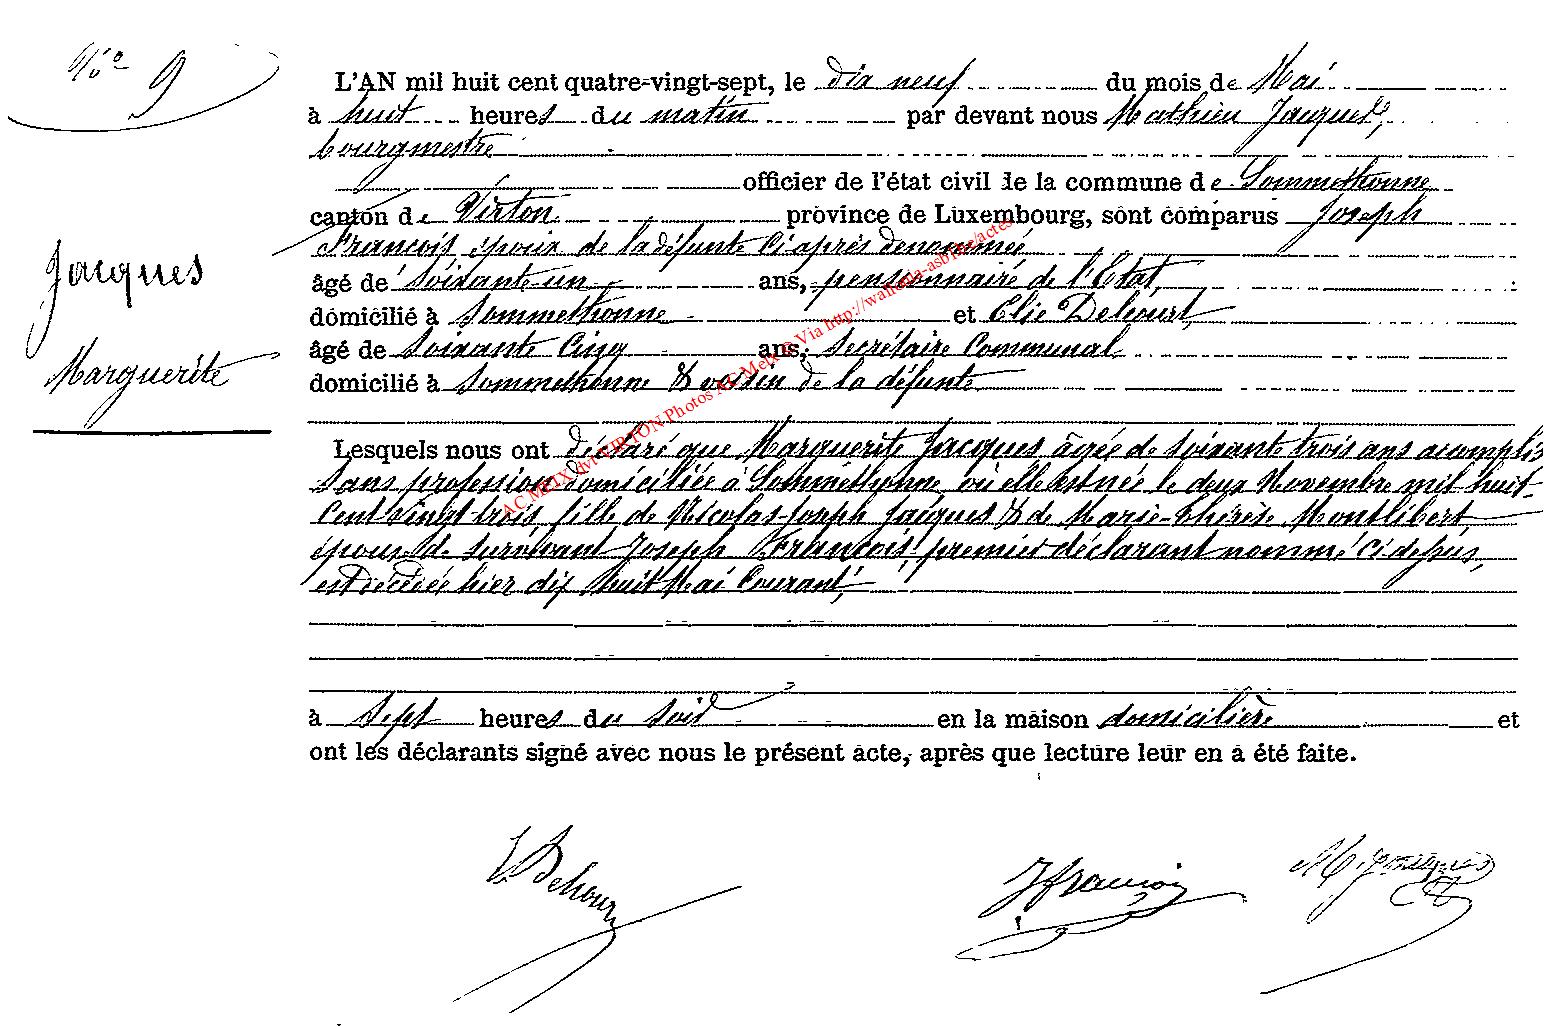 N.ro 9
L'AN mil huit cent quatre-vingt-sept, le dix neuf du mois de Mai
à huit heures du matin par devant nous Mathieu Jacques,
bourgmestre
officier de l'état civil de la commune de Sommethonne
canton de Virton province de Luxembourg, sont comparus Joseph
François, époux de la défunte ci après dénommée
âgé de soixante-un ans, pensionnaire de l'Etat,
domicilié à Sommethonne et Elie Delcourt,
âgé de soixante cinq ans, secrétaire communal
domicilié à Sommethonne & voisin de la défunte
Jacques
Marguerite
Lesquels nous ont déclaré que Marguerite Jacques âgée de soixante trois ans acomplis
sans profession domiciliée à Sommethonne où elle est née le deux Novembre mil huit-
cent vingt-trois, fille de Nicolas-Joseph Jacques & de Marie-Thérèse Montlibert,
épouse de survivant Joseph François, premier déclarant nommé ci dessus,
est décédée hier dix huit Mai courant,
à sept heures du soir en la maison domicilière et
ont les déclarants signé avec nous le présent acte, après que lecture leur en a été faite.
JFrançois
M. Jacques
AC MEIX-dvt-VIRTON Photos AC Meix © Via http://wallonia-asbl.be/actes